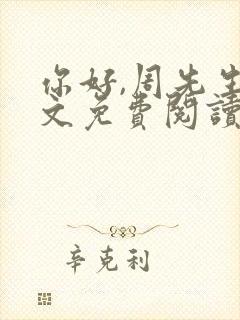 你好,周先生
文免費閱讀
辛克利